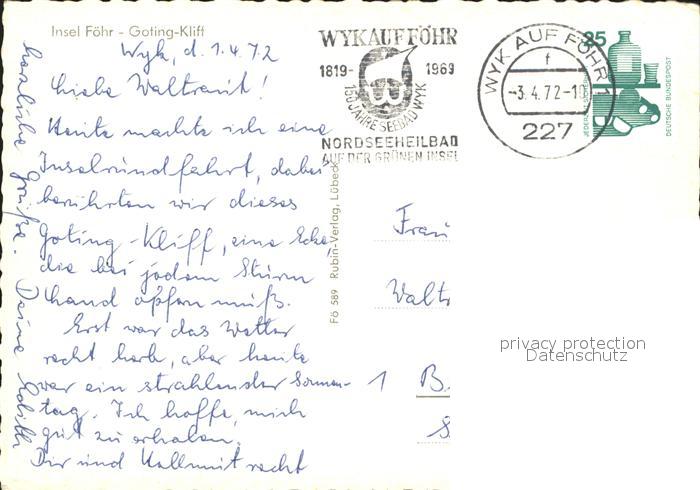 Insel Föhr - Goting-Kliff
Wyk, d. 1.4.72
Liebe Waltraut!
Heute machte ich eine
Inselrundfahrt, dabei
berührten wir dieses
Goting-Kliff, eine Ecke,
die bei jedem Sturm
Land opfern muß.
Erst war das Wetter
recht herb, aber heute
war ein strahlender Sonnen-
tag. Ich hoffe, mich
gut zu erholen.
Dir und Hellmut recht
herzliche Grüße. Deine Edith
Fö 589 Rubin-Verlag, Lübeck
WYK AUF FÖHR
1819- 1969
150 JAHRE SEEBAD WYK
NORDSEEHEILBAD
AUF DER GRÜNEN INSEL
WYK AUF FÖHR 1
f
-3.4.72-10
227
25
DEUTSCHE BUNDESPOST
Frau
Waltr
1 B.
S
privacy protection
Datenschutz